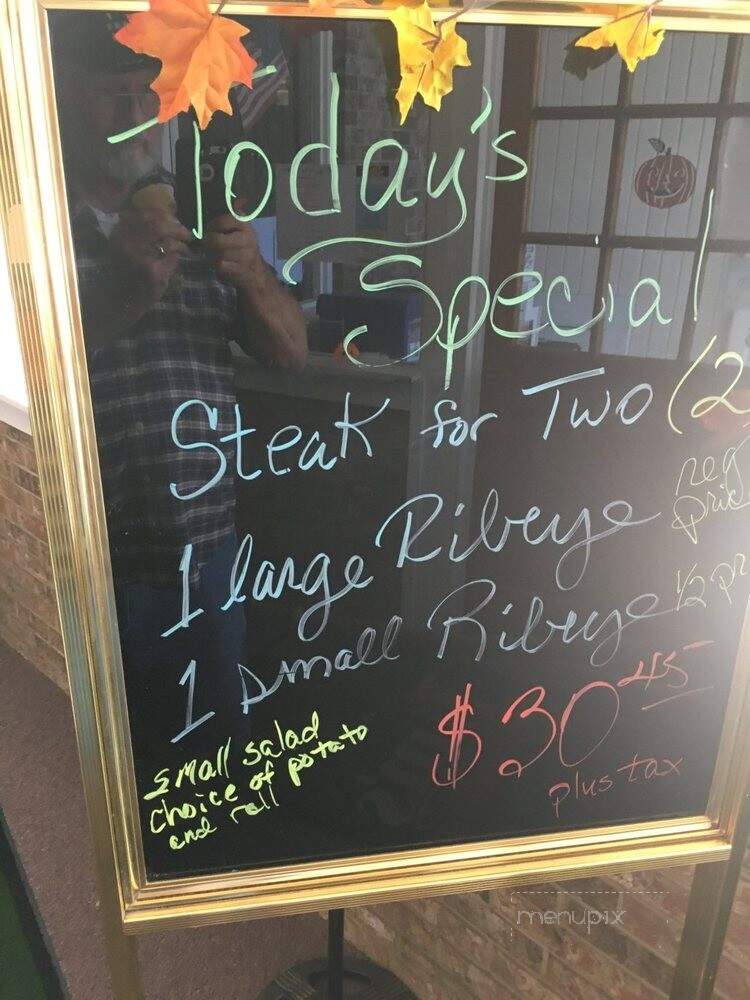 Today's
Special
Steak for Two (2
1 large Ribeye reg
1 small Ribeye 1/2 pr
$30.45
plus tax
small salad
choice of potato
and roll
menupix